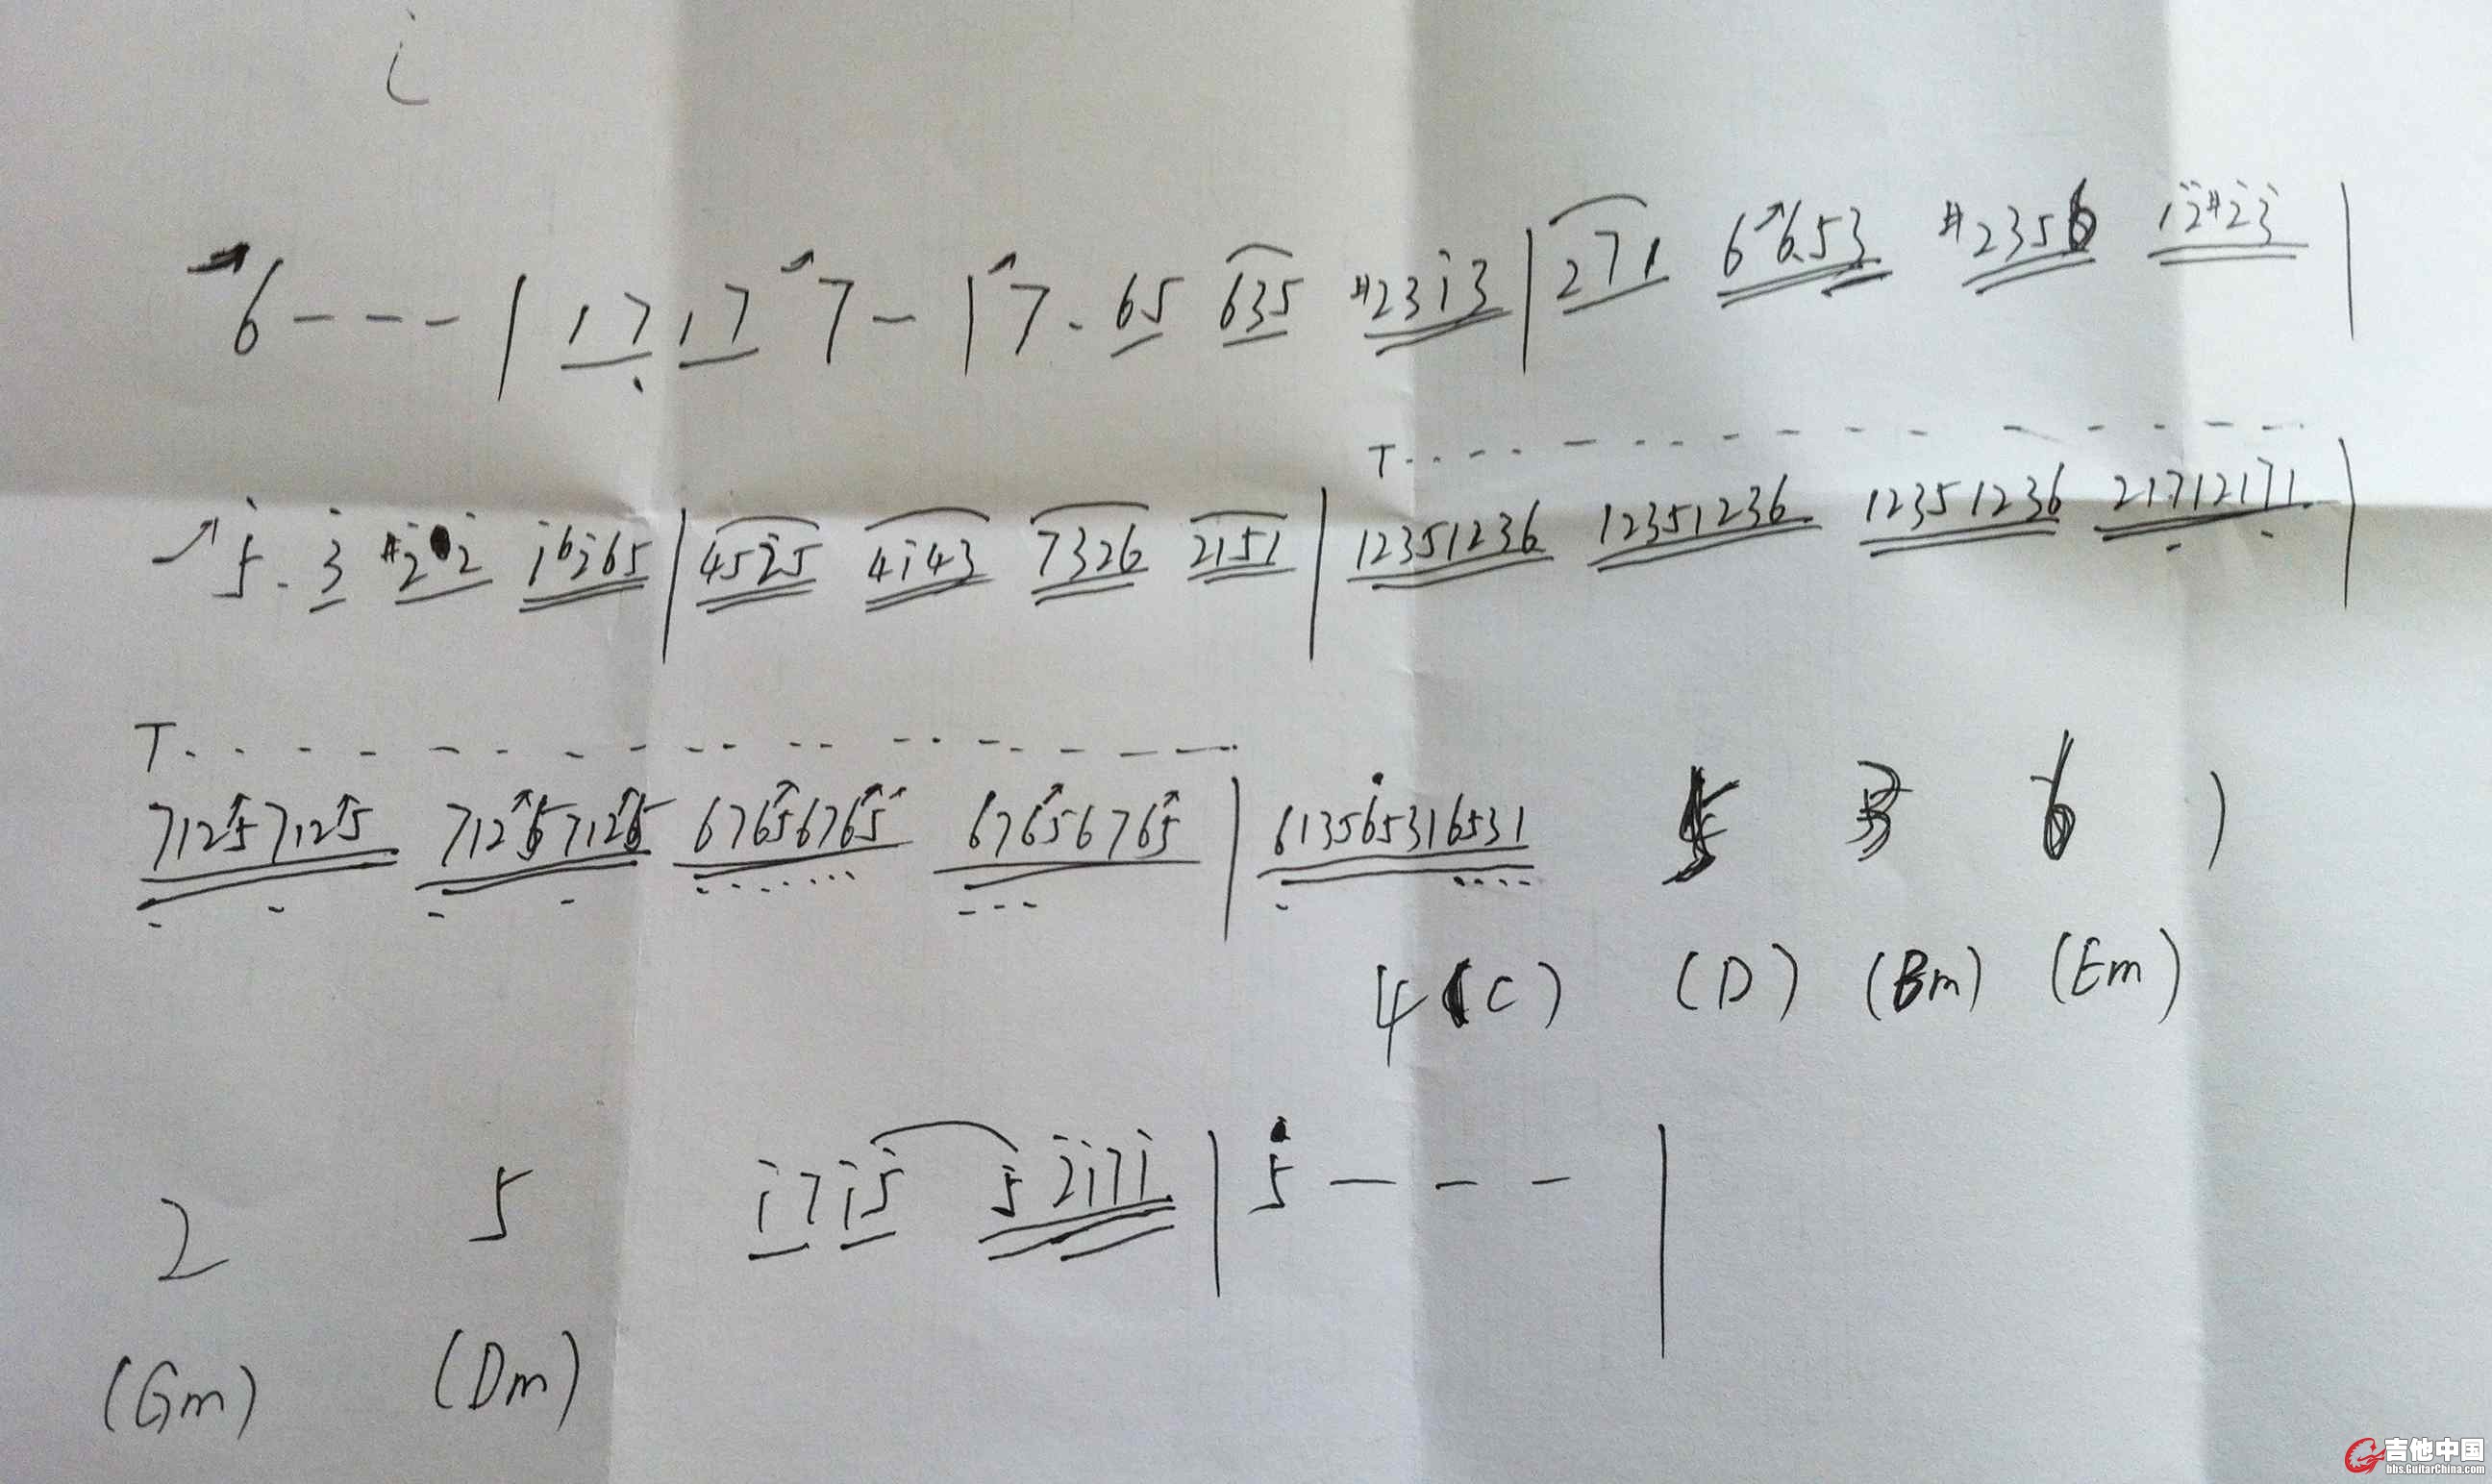 i
6 - - - | 17 17 7 - | 7 - 65 635 #23i3 | 271 6653 #2356 i2#23 |
5 - 3 #2 2 i6265 | 4525 4i43 7326 2151 | 12351236 12351236 12351236 21712171 |
T
T
71257125 71257126 67656765 67656765 | 613565316531 5 3 6 )
4 (C) (D) (Bm) (Em)
2 5 i7i5 52i7i | 5 - - - |
(Gm) (Dm)
吉他中国
bbs.GuitarChina.com